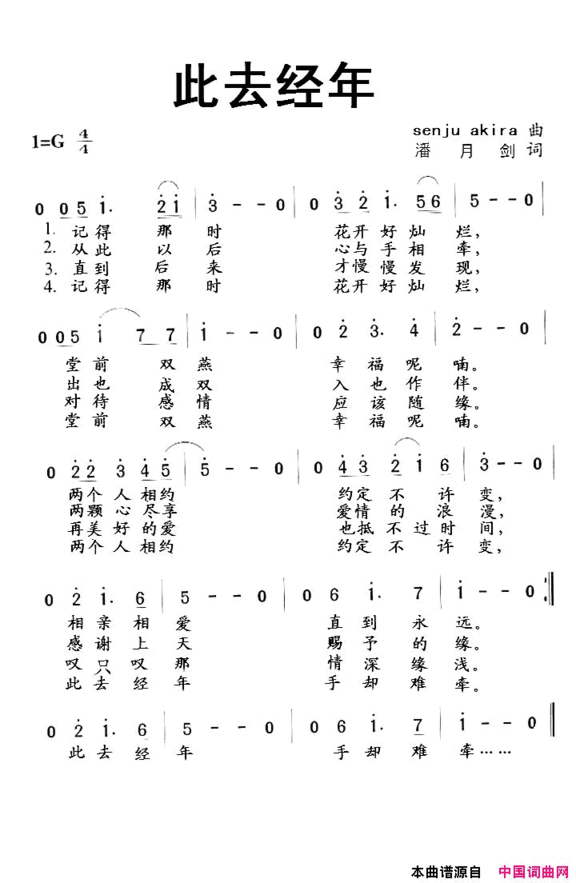 此去经年
1=G 4/4
senju akira 曲
潘月剑 词
0 0 5 1· 2 1 3 - - 0 0 3 2 1· 5 6 5 - - 0
1. 记得 那时 花开好灿烂，
2. 从此 以后 心与手相牵，
3. 直到 后来 才慢慢发现，
4. 记得 那时 花开好灿烂，
0 0 5 i 7 7 i - - 0 0 2 3· 4 2 - - 0
堂前 双燕 幸福呢喃。
出也 成双 入也作伴。
对待 感情 应该随缘。
堂前 双燕 幸福呢喃。
0 2 2 3 4 5 5 - - 0 0 4 3 2 1 6 3 - - 0
两个人相约 约定不许变，
两颗心尽享 爱情的浪漫，
再美好的爱 也抵不过时间，
两个人相约 约定不许变，
0 2 1· 6 5 - - 0 0 6 1· 7 1 - - 0
相亲相爱 直到永远。
感谢上天 赐予的缘。
叹只叹那 情深缘浅。
此去经年 手却难牵。
0 2 1· 6 5 - - 0 0 6 1· 7 1 - - 0
此去经年 手却难牵……
本曲谱源自 中国词曲网